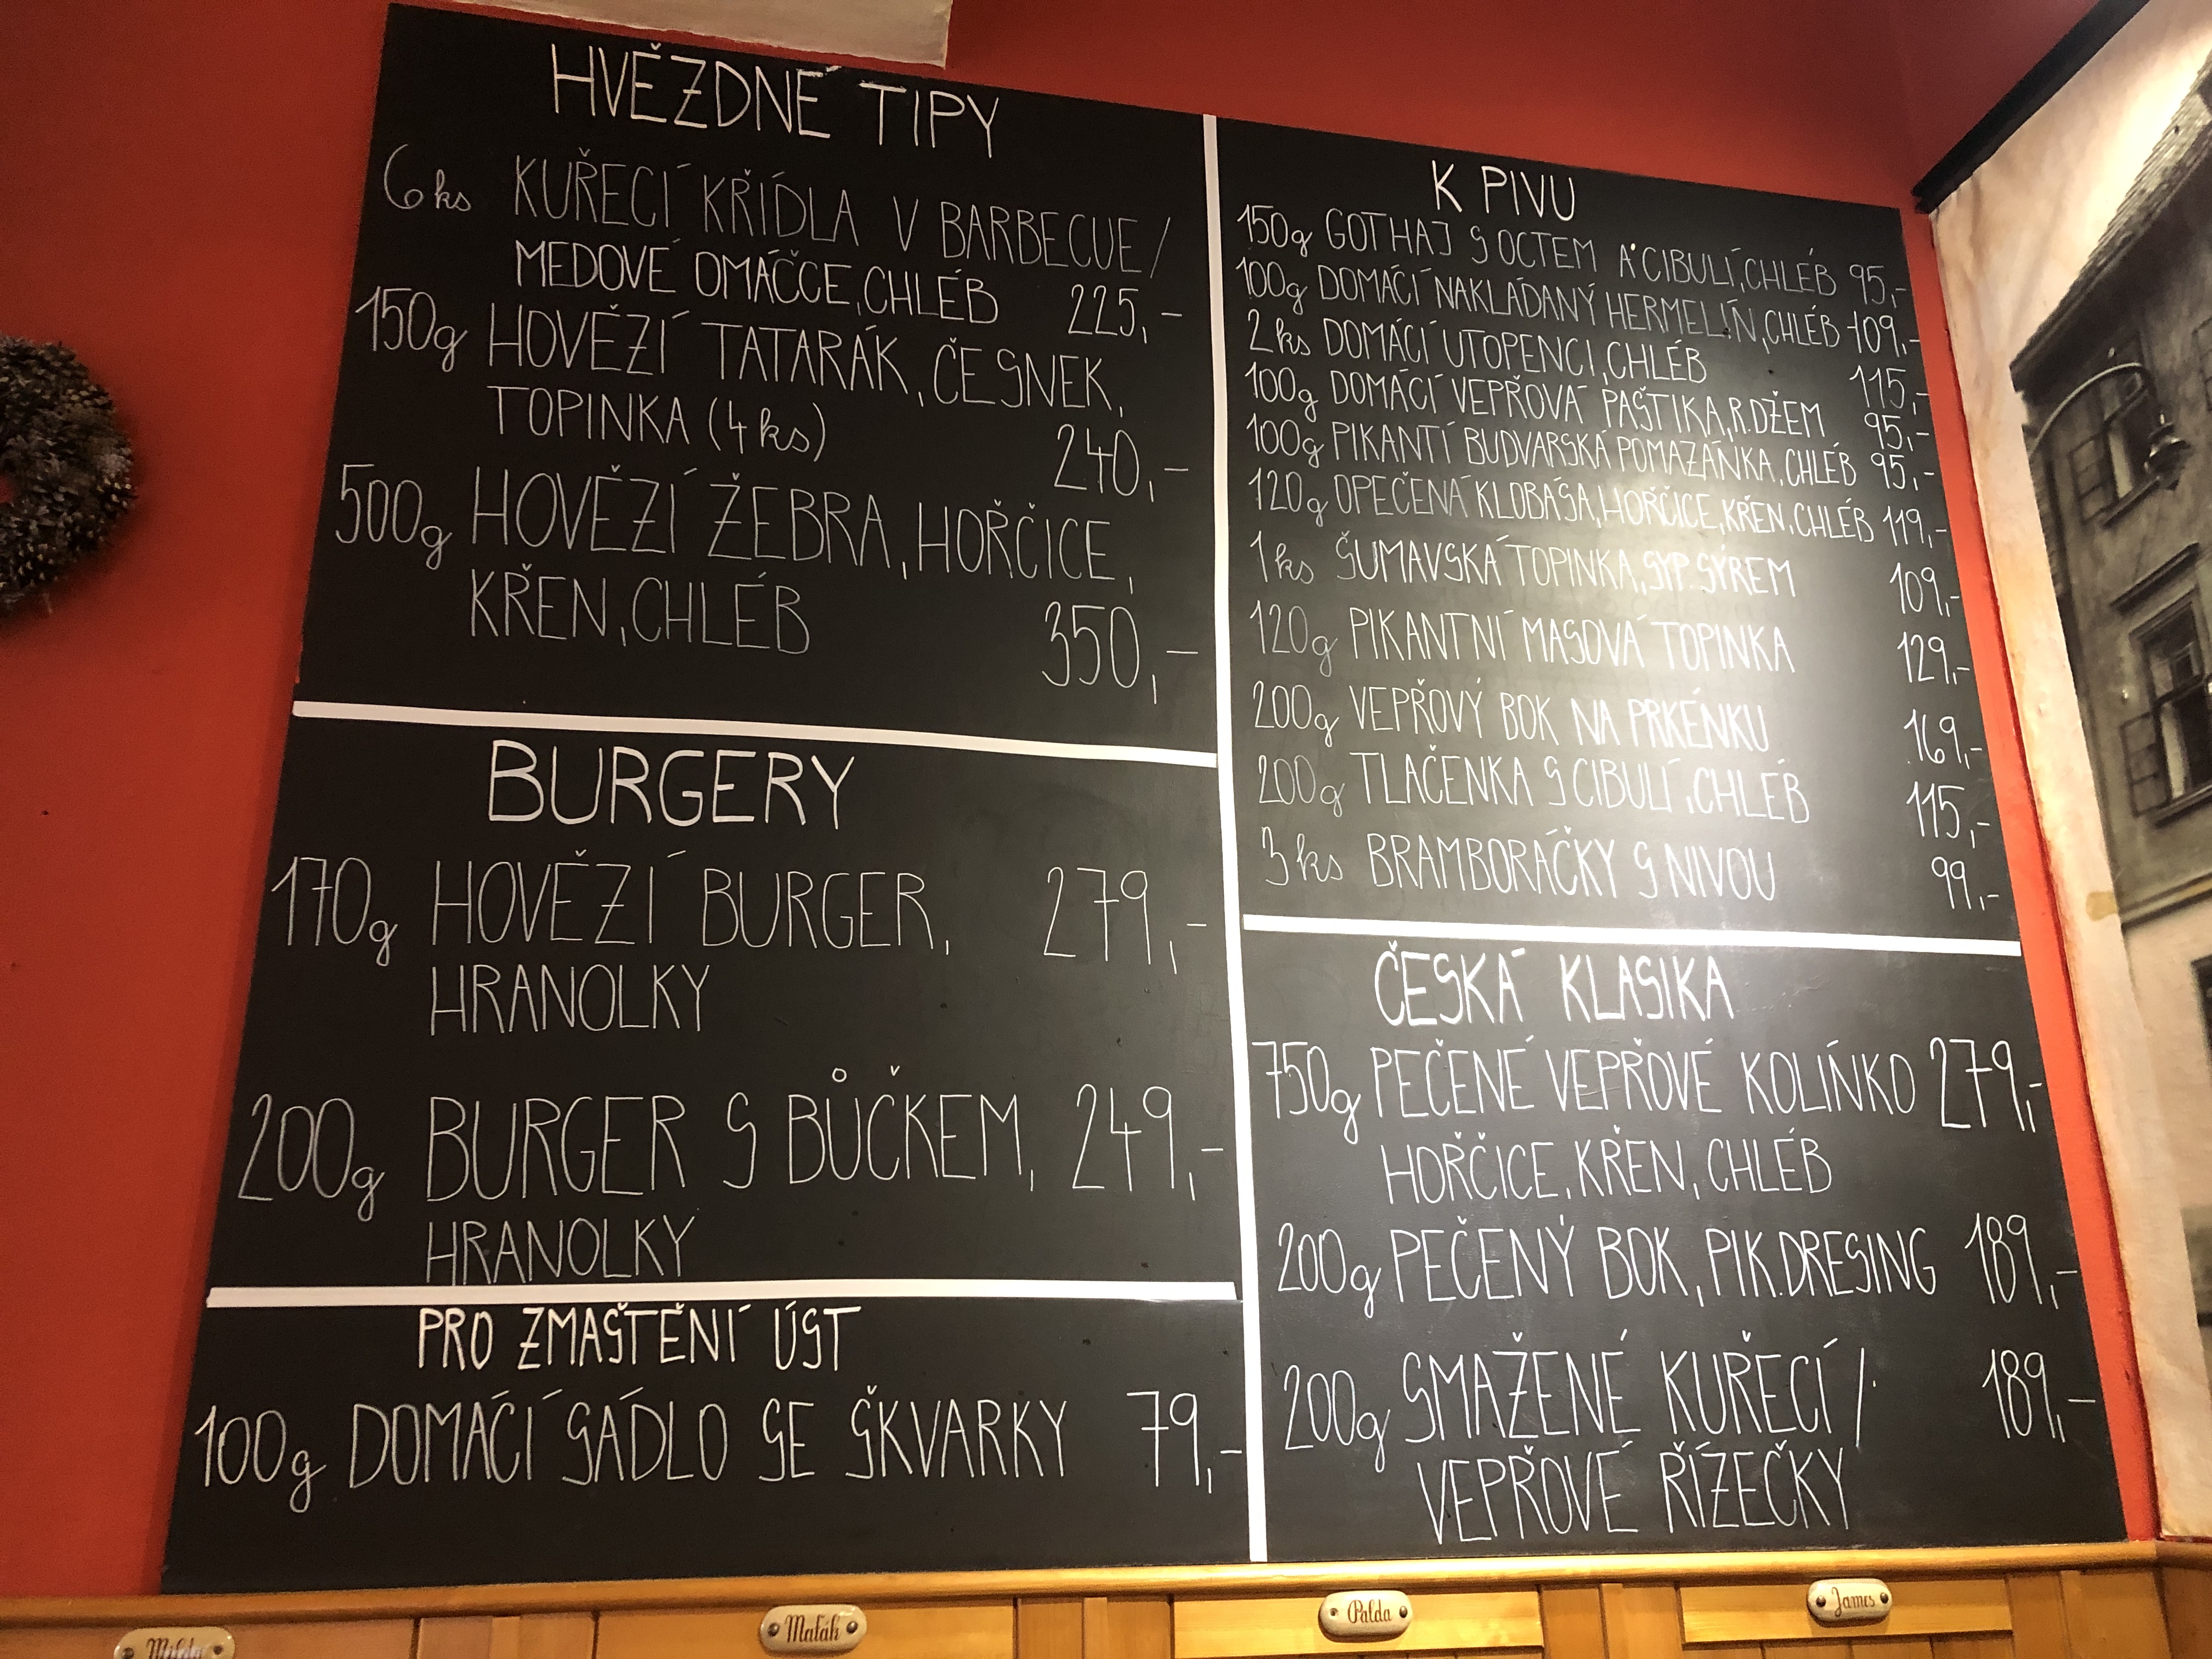 HVĚZDNÉ TIPY
6ks KUŘECÍ KŘÍDLA V BARBECUE/
MEDOVÉ OMÁČCE, CHLÉB 225,-
150g HOVĚZÍ TATARÁK, ČESNEK,
TOPINKA (4ks) 240,-
500g HOVĚZÍ ŽEBRA, HOŘČICE,
KŘEN, CHLÉB 350,-
BURGERY
170g HOVĚZÍ BURGER, 279,-
HRANOLKY
200g BURGER S BŮČKEM, 249,-
HRANOLKY
PRO ZMAŠTĚNÍ ÚST
100g DOMÁCÍ SÁDLO SE ŠKVARKY 79,-
K PIVU
150g GOTHAJ S OCTEM A CIBULÍ, CHLÉB 95,-
100g DOMÁCÍ NAKLÁDANÝ HERMELÍN, CHLÉB 109,-
2ks DOMÁCÍ UTOPENCI, CHLÉB 115,-
100g DOMÁCÍ VEPŘOVÁ PAŠTIKA, R.DŽEM 95,-
100g PIKANTÍ BUDVARSKÁ POMAZÁNKA, CHLÉB 95,-
120g OPEČENÁ KLOBÁSA, HOŘČICE, KŘEN, CHLÉB 119,-
1ks ŠUMAVSKÁ TOPINKA, SYP. SÝREM 109,-
120g PIKANTNÍ MASOVÁ TOPINKA 129,-
200g VEPŘOVÝ BOK NA PRKÉNKU 169,-
200g TLAČENKA S CIBULÍ, CHLÉB 115,-
3ks BRAMBORÁČKY S NIVOU 99,-
ČESKÁ KLASIKA
750g PEČENÉ VEPŘOVÉ KOLÍNKO 279,-
HOŘČICE, KŘEN, CHLÉB
200g PEČENÝ BOK, PIK.DRESING 189,-
200g SMAŽENÉ KUŘECÍ / 189,-
VEPŘOVÉ ŘÍZEČKY
Maťák
Palda
James